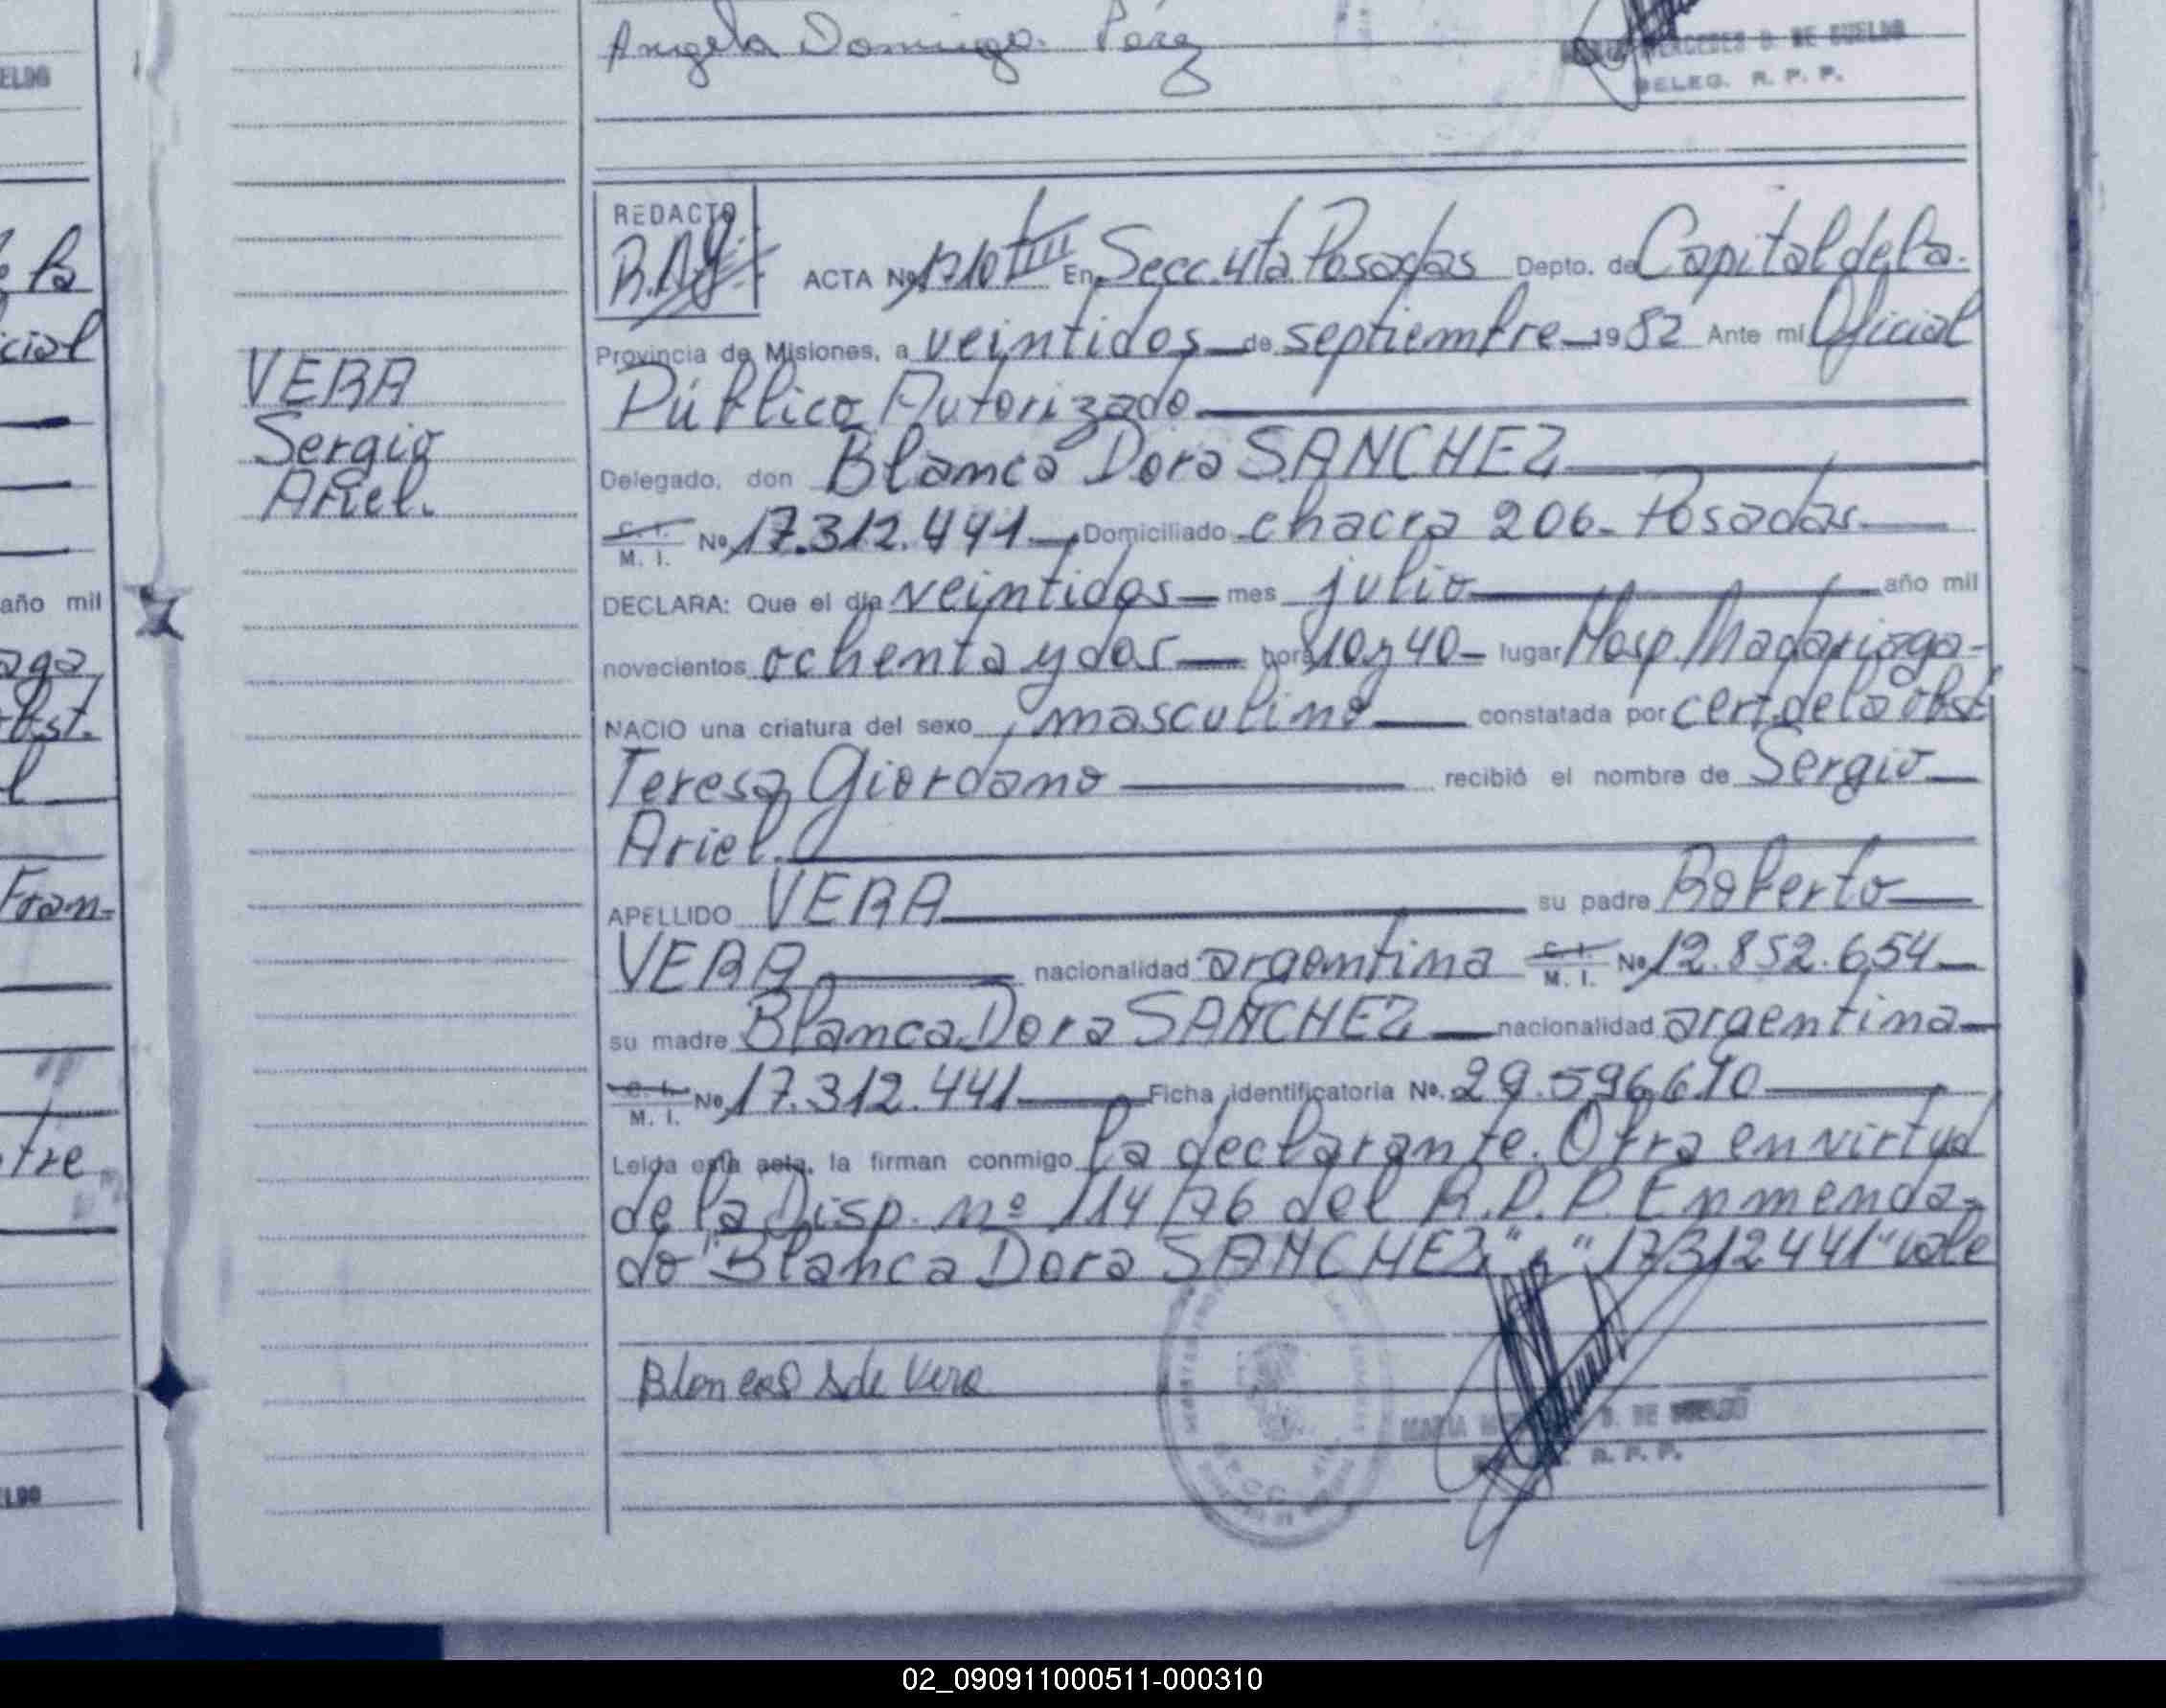 Angela Domingo. Pérez
MERCEDES D. DE SUELDO
DELEG. R. P. P.
ELDO
REDACTO
ACTA Nº 1210 tIII En Secc. 4ta Posadas Depto. de Capital de la
Provincia de Misiones, a veintidos de septiembre 1982 Ante mi Oficial
Público Autorizado
VERA
Sergio
Ariel.
Delegado, don Blanca Dora SANCHEZ
C. I.
M. I. Nº 17.312.441 Domiciliado chacra 206- Posadas
DECLARA: Que el día veintidos mes julio año mil
novecientos ochenta y dos hora 10 y 40 lugar Hosp. Madariaga
NACIO una criatura del sexo masculino constatada por cert. de la obst
Teresa Giordano recibió el nombre de Sergio
Ariel.
APELLIDO VERA su padre Roberto
VERA nacionalidad argentina C. I. M. I. Nº 12.852.654
su madre Blanca Dora SANCHEZ nacionalidad argentina
C. I. M. I. Nº 17.312.441 Ficha identificatoria Nº. 29.596.610
Leida esta acta, la firman conmigo la declarante. Obra en virtud
de la Disp. nº 114/76 del R.P.P. Enmenda-
do "Blanca Dora SANCHEZ" e "17312441" vale
Blanca S de Vera
MARIA D. DE SUELDO
R. P. P.
cial
año mil
aga
obst.
Fran-
tre
02_090911000511-000310